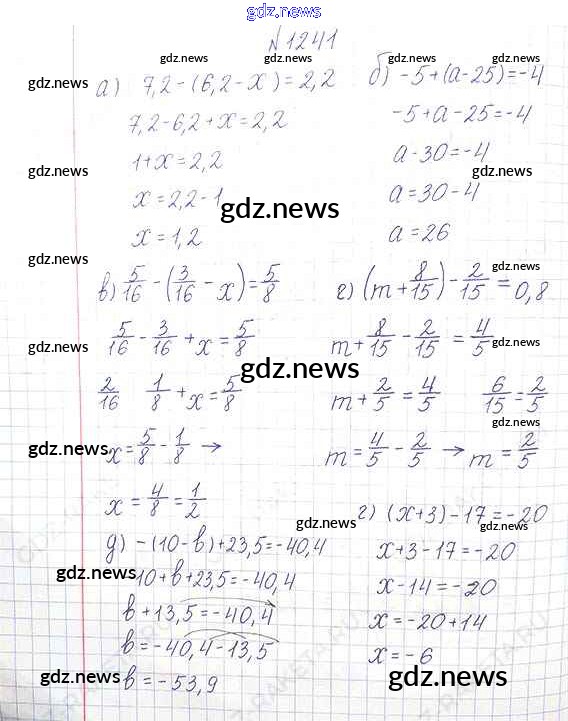 gdz.news
№1241
gdz.news gdz.news gdz.news gdz.news
а) 7,2-(6,2-x)=2,2
б) -5+(a-25)=-4
gdz.news
7,2-6,2+x=2,2
-5+a-25=-4
gdz.news
1+x=2,2
a-30=-4
gdz.news gdz.news
x=2,2-1
a=30-4
gdz.news
x=1,2
a=26
gdz.news
в) 5/16-(3/16-x)=5/8
г) (m+8/15)-2/15=0,8
gdz.news
5/16-3/16+x=5/8
m+8/15-2/15=4/5
gdz.news gdz.news
gdz.news
2/16 1/8+x=5/8
m+2/5=4/5 6/15=2/5
gdz.news
gdz.news
x=5/8-1/8 →
m=4/5-2/5 → m=2/5
gdz.news
x=4/8=1/2
г) (x+3)-17=-20
gdz.news gdz.news
д) -(10-b)+23,5=-40,4
x+3-17=-20
gdz.news
10+b+23,5=-40,4
x-14=-20
b+13,5=-40,4
x=-20+14
b=-40,4-13,5
x=-6
gdz.news gdz.news
b=-53,9